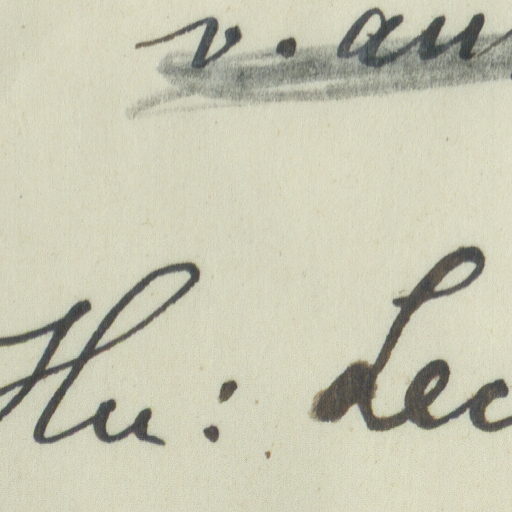 v. au
Hu: Lec